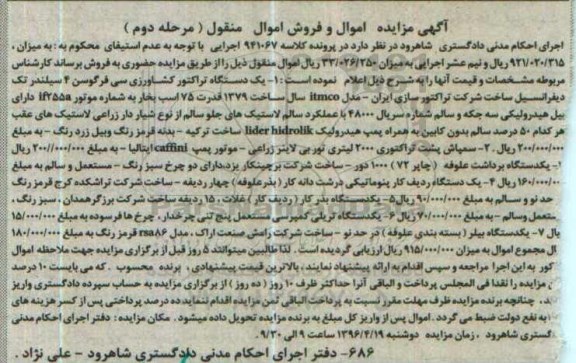 آگهی مزایده اموال و فروش اموال منقول ( مرحله دوم )
اجرای احکام مدنی دادگستری شاهرود در نظر دارد در پرونده کلاسه ۹۴۱۰۶۷ اجرایی با توجه به عدم استیفای محکوم به : به میزان ،
۹۲۱/۰۲۰/۳۱۵ ریال و نیم عشر اجرایی به میزان ۳۳/۰۲۶/۲۵۰ ریال اموال منقول ذیل را از طریق مزایده حضوری به فروش برساند کارشناس
مربوطه مشخصات و قیمت آنها را به شرح ذیل اعلام نموده است : ۱- یک دستگاه تراکتور کشاورزی سی فرگوسن ۴ سیلندر تک
دیفرانسیل ساخت شرکت تراکتور سازی ایران - مدل itmco سال ساخت ۱۳۷۹ قدرت ۷۵ اسب بخار به شماره موتور if۲۵۵a دارای
بیل هیدرولیکی سه جکه و سالم شماره سریال ۴۸۰۰۰ با عملکرد سالم لاستیک های جلو سالم از نوع شیار دار زراعی لاستیک های عقب
هر کدام ۵۰ درصد سالم بدون کابین به همراه پمپ هیدرولیک lider hidrolik ساخت ترکیه - بدنه قرمز رنگ وبیل زرد رنگ - به مبلغ
۲۰۰/۰۰۰/۰۰۰ ریال . ۲- سمپاش پشت تراکتوری ۲۰۰۰ لیتری توربی لاینر زراعی - موتور پمپ caffini ایتالیا - به مبلغ ۲۰۰/۰۰۰/۰۰۰ ریال
۳- یکدستگاه برداشت علوفه ( چاپر ۷۲ ) ۱۰۰۰ دور - ساخت شرکت برچینکار یزد،دارای دو چرخ سبز رنگ - مستعمل و سالم به مبلغ
۱۶۰/۰۰۰/۰۰۰ ریال ۴- یک دستگاه ردیف کار پنوماتیکی درشت دانه کار ( بذر علوفه ) چهار ردیفه - ساخت شرکت تراشکده کرج قرمز رنگ
حد نو و سالم به مبلغ ۹۰/۰۰۰/۰۰۰ ریال ۵- یکدستگاه بذر کار ( ردیف کار ) غلات ، ۱۵ ردیفه ساخت شرکت برزگر همدان ، سبز رنگ ،
مستعمل وسالم - به مبلغ ۷۰/۰۰۰/۰۰۰ ریال ۶- یکدستگاه تریلی کمپر مستعمل پنج تنی چرخدار ، چرخ ها فرسوده به مبلغ ۱۵/۰۰۰/۰۰۰
ریال ۷- یکدستگاه بیلر ( بسته بندی علوفه ) در حد نو - ساخت شرکت رامش صنعت اراک ، مدل rsa۸۶ قرمز رنگ به مبلغ ۱۸۰/۰۰۰/۰۰۰
ال مجموع اموال به میزان ۹۱۵/۰۰۰/۰۰۰ ریال ارزیابی گردیده است . لذا طالبین میتوانند ۵ روز قبل از برگزاری مزایده جهت ملاحظه اموال
کور به این اجرا مراجعه و سپس اقدام به ارائه پیشنهاد نمایند ، بالاترین قیمت پیشنهادی ، برنده محسوب . که می بایست ۱۰ درصد
ن مزایده را نقدا فی المجلس پرداخت و الباقی آنرا حداکثر ظرف ۱۰ روز ( ده روز ) از برگزاری مزایده به حساب سپرده دادگستری واریز
ند . چنانچه برنده مزایده ظرف مهلت مقرر نسبت به پرداخت الباقی ثمن مزایده اقدام ننماید ده درصد پرداختی پس از کسر هزینه های
به نفع دولت ضبط می گردد . اموال پس از واریز کل مبلغ به برنده مزایده تحویل داده میشود . مکان مزایده : دفتر اجرای احکام مدنی
گستری شاهرود ، زمان مزایده دوشنبه ۱۳۹۶/۴/۱۹ ساعت ۹ الی ۹/۳۰ .
۶۸۶- دفتر اجرای احکام مدنی دادگستری شاهرود - علی نژاد .